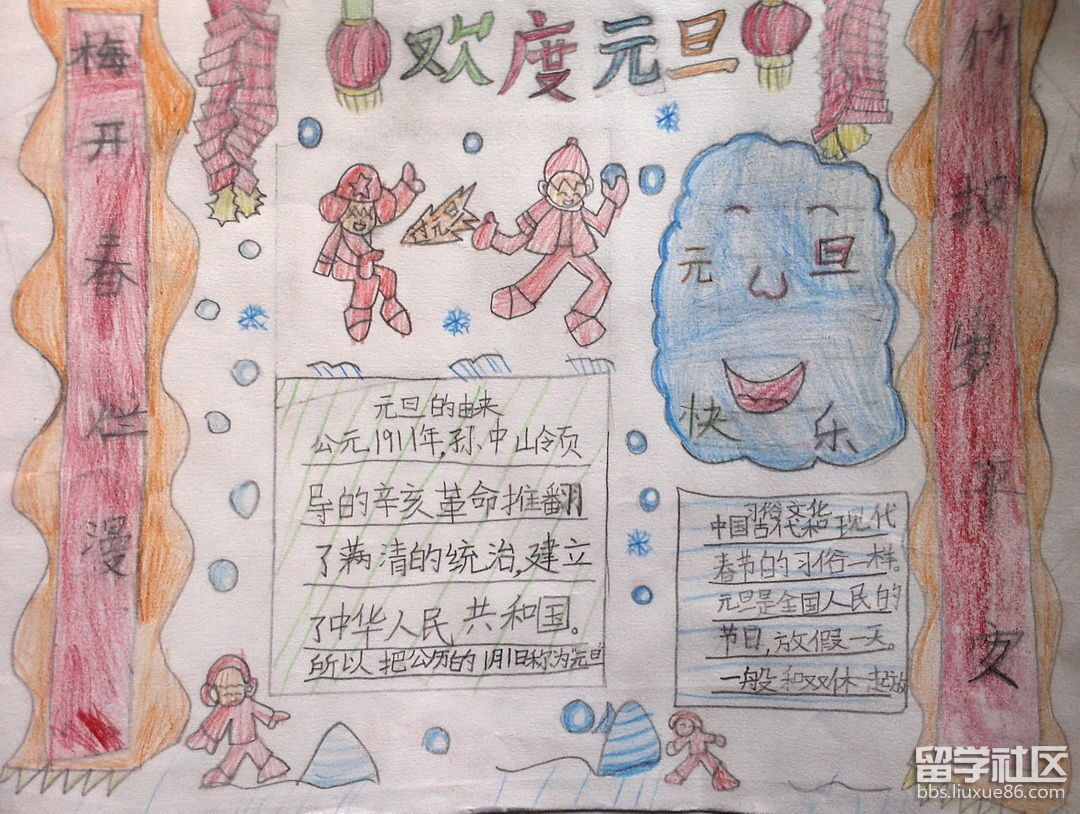 欢度元旦
梅开春烂漫
竹报岁平安
元旦
快乐
元旦的由来
公元1911年,孙中山领
导的辛亥革命推翻
了满清的统治,建立
了中华人民共和国。
所以把公历的1月1日称为元旦
习俗文化
中国古代和现代
春节的习俗一样。
元旦是全国人民的
节日,放假一天。
一般和双休一起放
留学社区
bbs.liuxue86.com